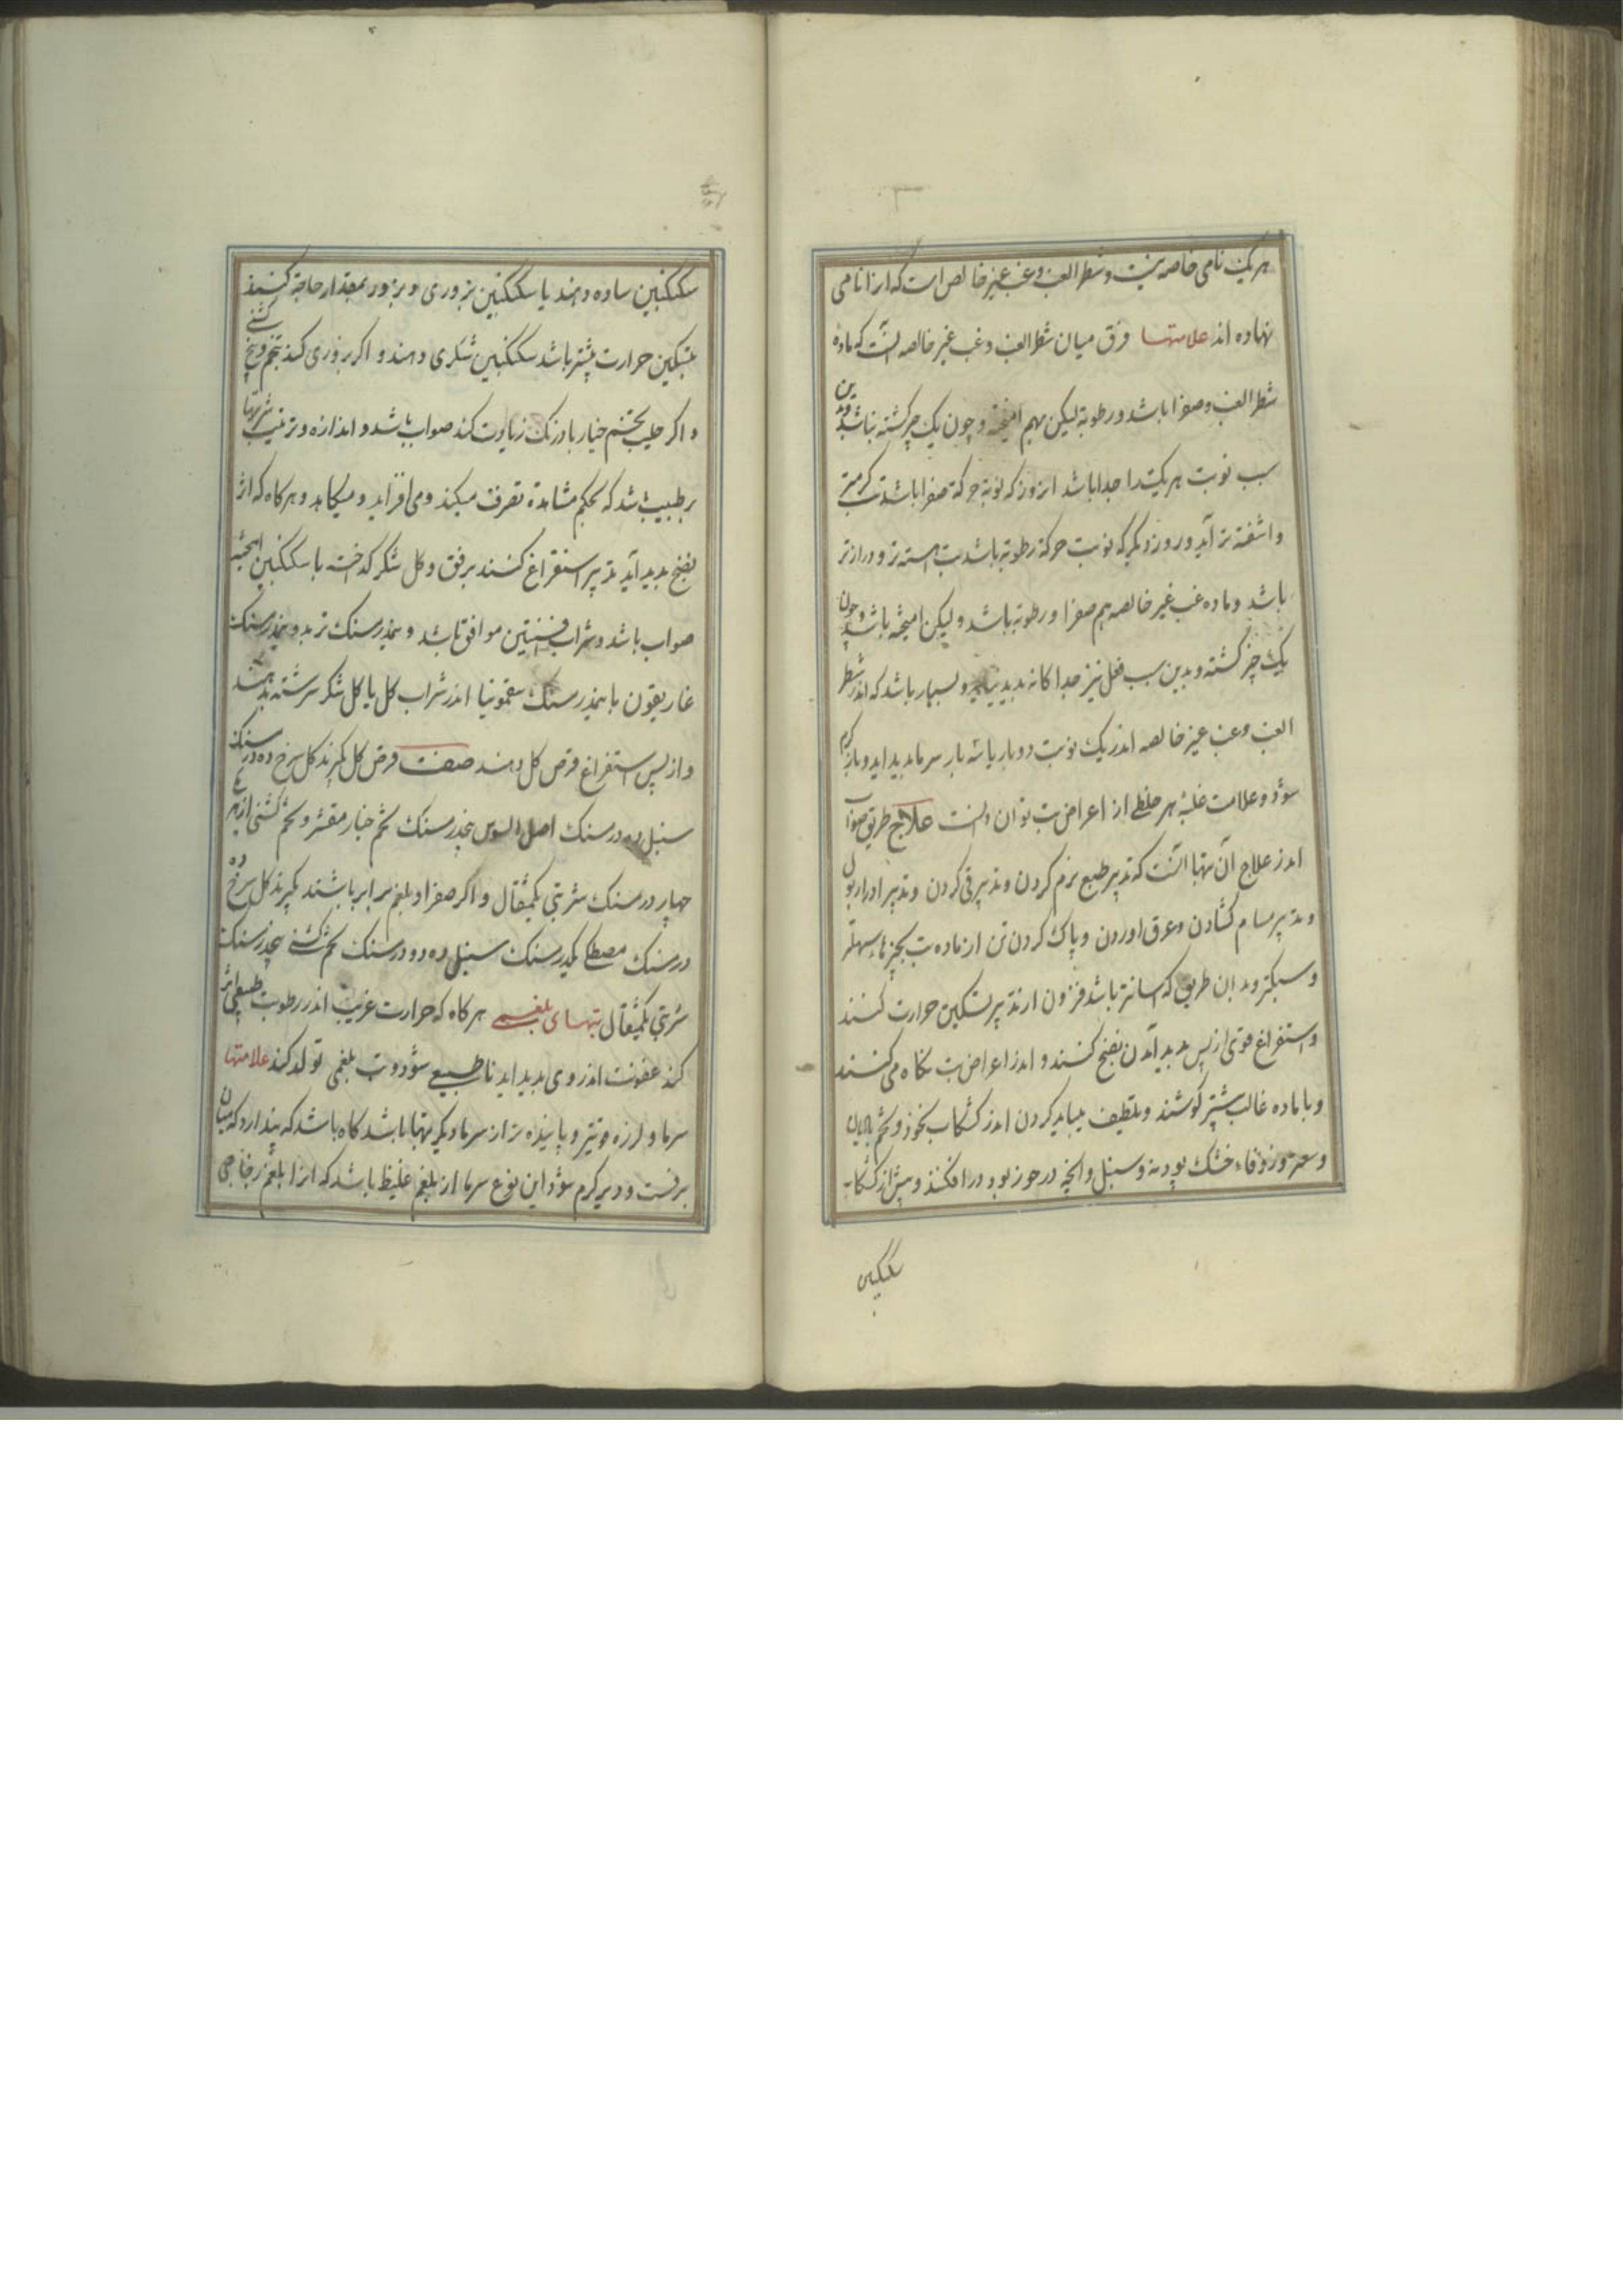 هر یک نامی خاصه نیست و شطر الغب و غب غیر خالص است که ازا نامی
نهاده اند علامتها فرق میان شطر الغب و غب غیر خالصه آنست که ماده
شطر الغب و صفرا باشد و رطوبة لیکن بهم امیخته و چون یک چیز کشته نباشد و بدین
سبب نوبت هر یک را جدا باشد ان روز که نوبة حرکة صفرا باشد تب کرمتر
و اشفته تر آید و روز دیکر که نوبت حرکة رطوبة باشد تب اهسته تر و درازتر
باشد و ماده غب غیر خالصه هم صفرا و رطوبة باشد و لیکن امیخته باشد و چون
یک چیز کشته و بدین سبب فعل نیز جدا کانه بدید نیاید و بسیار باشد که اندر شطر
الغب و غب غیر خالصه اندر یک نوبت دو بار یا سه بار سرما بدید اید و باز کرم
شوذ و علامت غلبۀ هر خلطی از اعراض تب توان دانست علاج طریق صواب
اندر علاج آن تبها آنست که تدبیر طبع نرم کردن و تدبیر قی کردن و تدبیر ادرار بول
و تدبیر مسام کشادن و عرق اوردن و پاک کردن تن از ماده تب بچیزهاء سهلتر
و سبکتر و بدان طریق که اسانتر باشد فزون از تدبیر تسکین حرارت کنند
و استفراغ قوی از پس بدید آمدن نضج کنند و اندر اعراض تب نکاه می کنند
و با ماده غالب بیشتر کوشند و تلطیف میباید کردن اندر کشکاب نخوذ و تخم بادیان
و سعتر و زوفاء خشک پودنه و سنبل و انچه در خور بود در افکنند و پیش از کشکاب
سکنکبین
سکنکبین ساده دهند یا سکنکبین بزوری و بزور بمقدار حاجة کنند
بتسکین حرارت بیشتر باشد سکنکبین شکری دهند و اکر بزوری کند تخم و بیخ کشنی
و اکر حلیب تخم خیار بادرنک زیادت کند صواب باشد و اندازه و ترتیب شربتها
بر طبیب باشد که بحکم مشاهدة تصرف میکند و می افزاید و میکاهد و هرکاه که اثر
نضج بدید آید تدبیر استفراغ کنند برفق و کل شکر کداخته با سکنکبین امیخته
صواب باشد و شراب افسنتین موافق باشد و نیمدرسنک تربد و نیمدرسنک
غاریقون با نیمدرسنک سقمونیا اندر شراب کل یا کل شکر سرشته بدهند
و از پس استفراغ قرص کل دهند صفت قرص کل بکیرند کل سرخ ده درسنک
سنبل ده درسنک اصل السوس پنجدرسنک تخم خیار مقشر و تخم کشنی از هر یکی
چهار درسنک شربتی یکمثقال و اکر صفرا و بلغم برابر باشند بکیرند کل سرخ ده
درسنک مصطکی یکدرسنک سنبل ده دو درسنک تخم کشنی پنجدرسنک
شربتی یکمثقال تبهای بلغمی هرکاه که حرارت غریب اندر رطوبت طبیعی اثر
کند عفونت اندر وی بدید اید ناطبیعی شوذ و تب بلغمی تولد کند علامتها
سرما و لرزه قویتر و پاینده تر از سرما دیکر تبها باشد کاه باشد که پندارد که میان
برفست و دیر کرم شوذ این نوع سرما از بلغم غلیظ باشد که ازا بلغم زجاجی